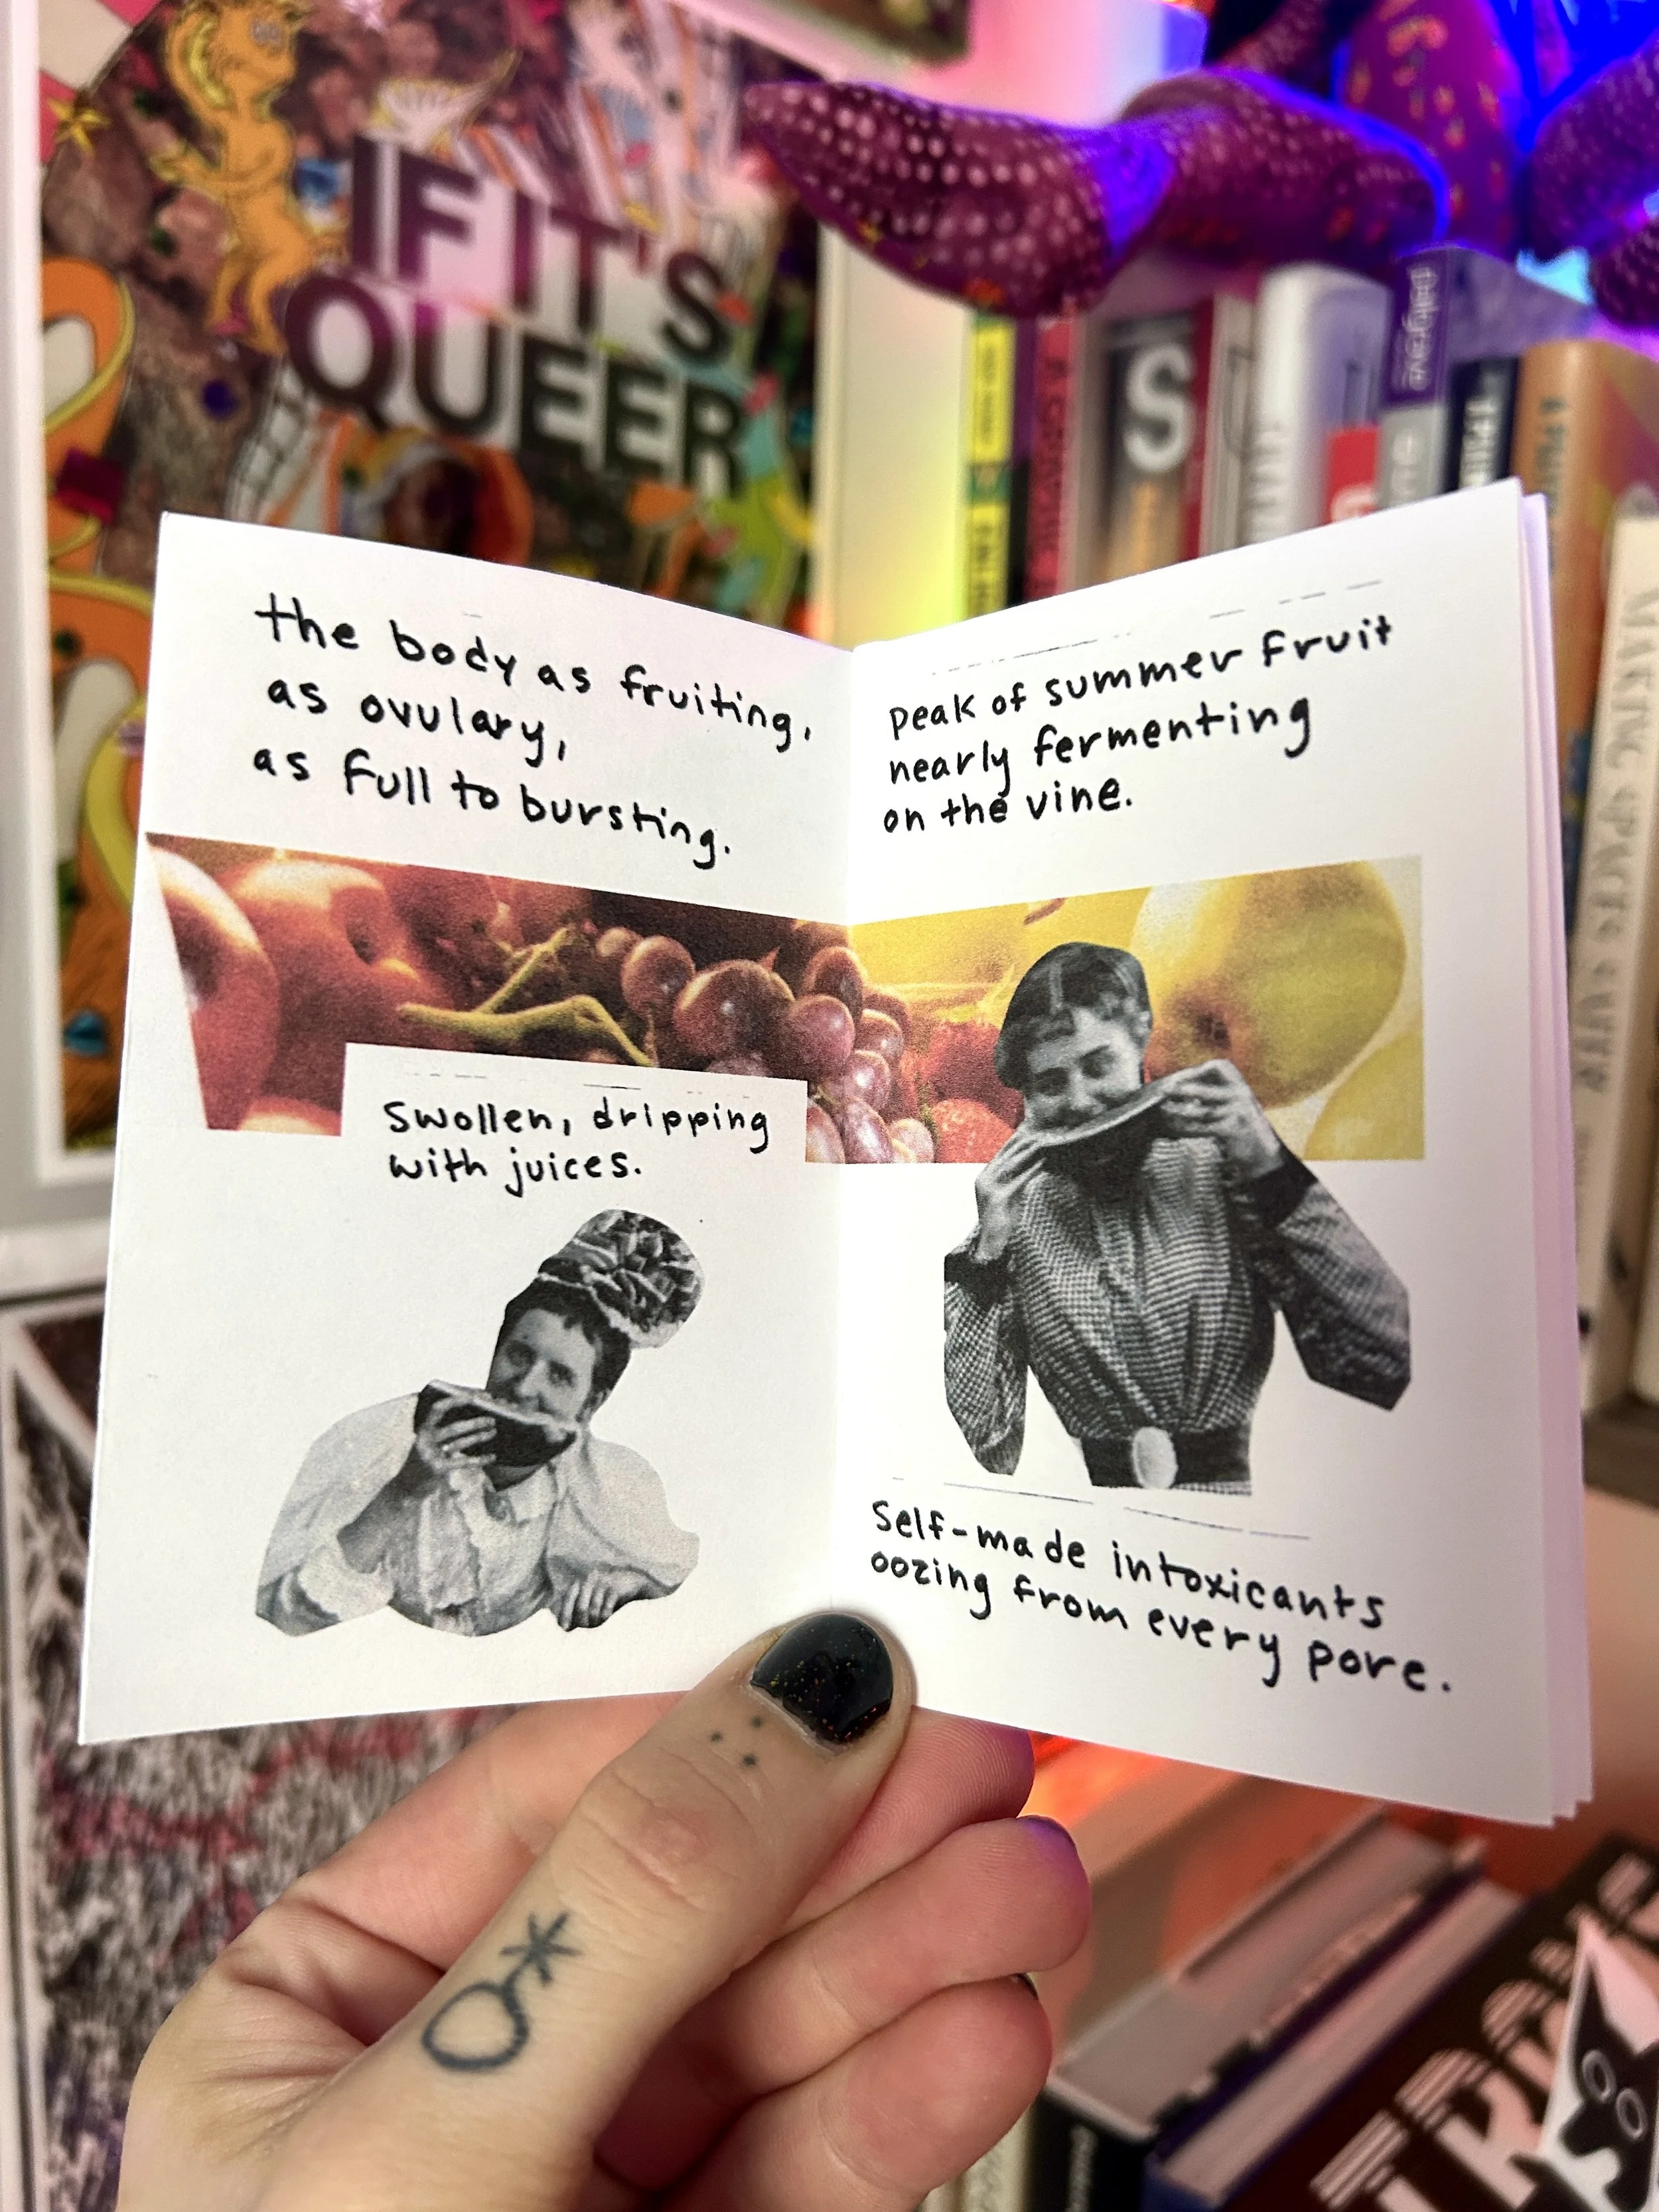 IF IT'S
QUEER
the body as fruiting,
as ovulary,
as full to bursting.
Swollen, dripping
with juices.
peak of summer fruit
nearly fermenting
on the vine.
Self-made intoxicants
oozing from every pore.
palgrave
S
MAKING SPACES SAFER